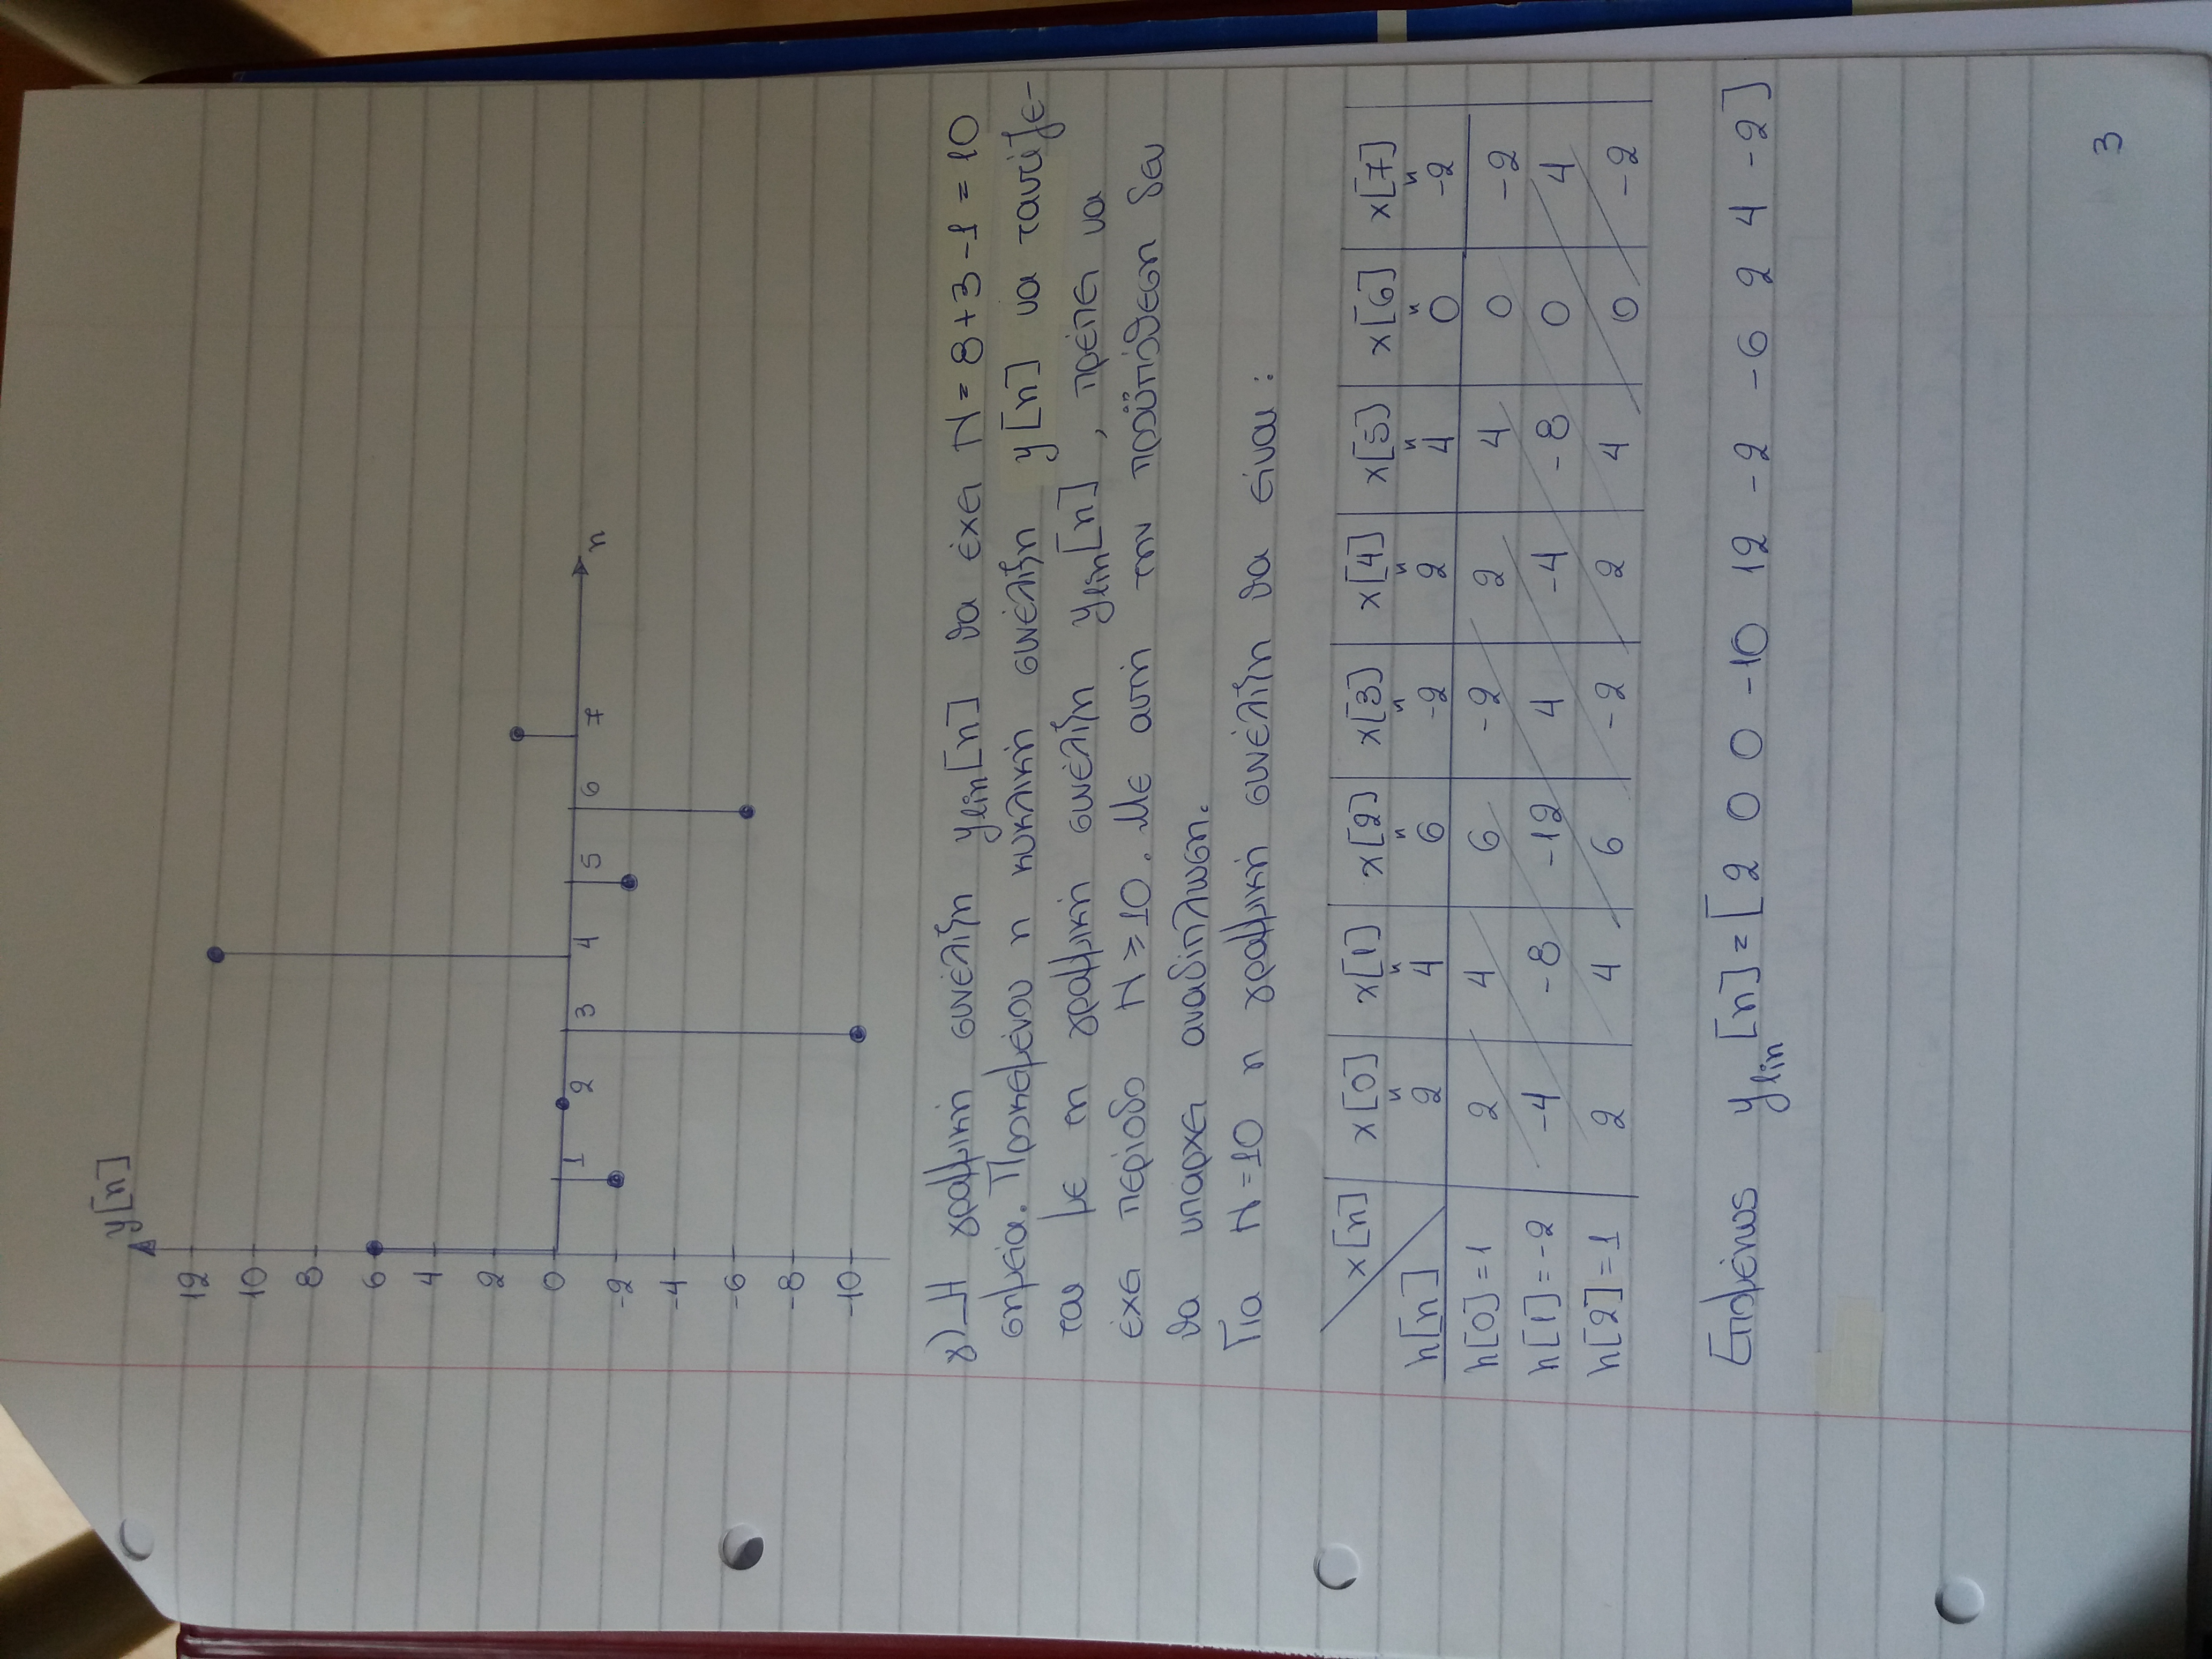 y[n]
12
10
8
6
4
2
0
-2
-4
-6
-8
-10
1 2 3 4 5 6 7 n
γ) Η γραμμική συνέλιξη ylin[n] θα έχει N = 8+3-1 = 10
σημεία. Προκειμένου η κυκλική συνέλιξη y[n] να ταυτίζε-
ται με τη γραμμική συνέλιξη ylin[n], πρέπει να
έχει περίοδο N ≥ 10. Με αυτή την προϋπόθεση δεν
θα υπάρχει αναδίπλωση.
Για N=10 η γραμμική συνέλιξη θα είναι:
x[n] x[0] x[1] x[2] x[3] x[4] x[5] x[6] x[7]
= = = = = = = =
h[n] 2 4 6 -2 2 4 0 -2
h[0]=1 2 4 6 -2 2 4 0 -2
h[1]=-2 -4 -8 -12 4 -4 -8 0 4
h[2]=1 2 4 6 -2 2 4 0 -2
Επομένως ylin[n]=[2 0 0 -10 12 -2 -6 2 4 -2]
3